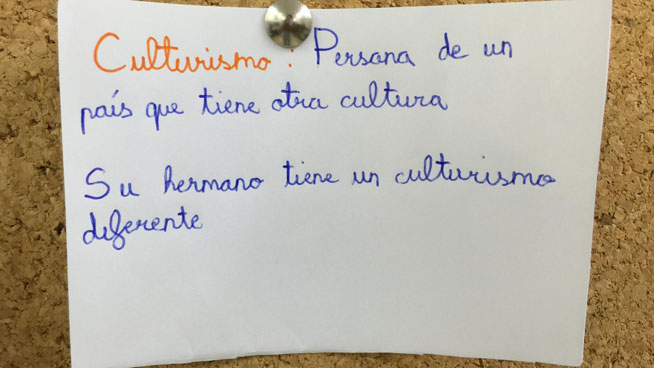 Culturismo: Persona de un
país que tiene otra cultura
Su hermano tiene un culturismo
diferente